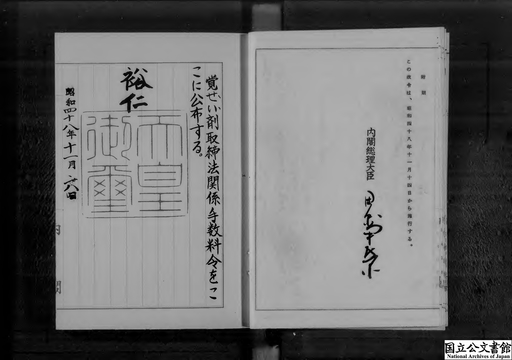 附則
この政令は、昭和四十八年十一月十四日から施行する。
内閣総理大臣
田中角榮
覚せい剤取締法関係手数料令をこ
こに公布する。
裕仁
天皇
御璽
昭和四十八年十一月六日
国立公文書館
National Archives of Japan